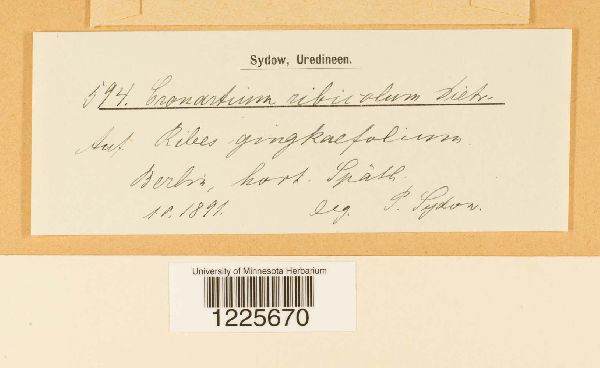 Sydow, Uredineen.
594. Cronartium ribicolum Dietr.
Auf Ribes gingkaefolium
Berlin, hort. Späth.
10. 1891. leg. P. Sydow.
University of Minnesota Herbarium
1225670